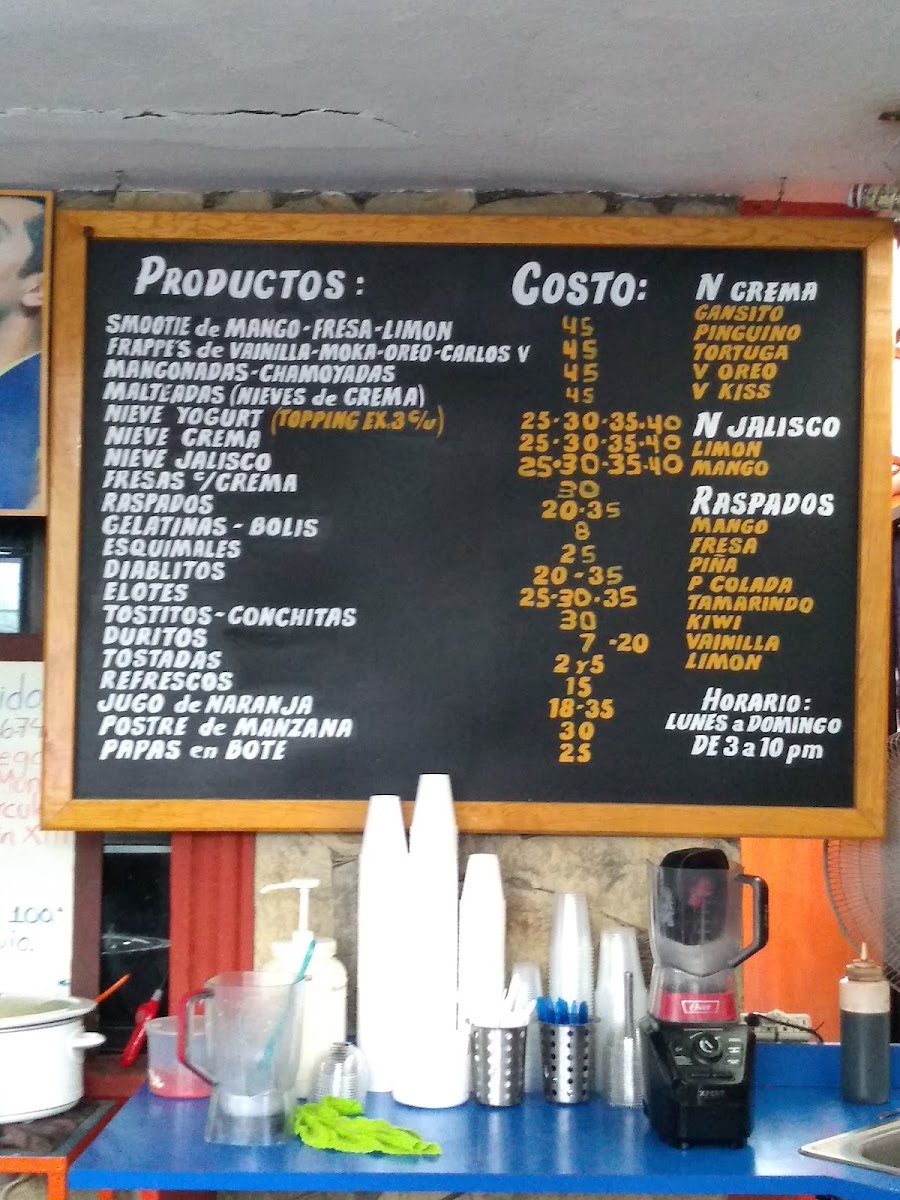 PRODUCTOS:
SMOOTIE de MANGO-FRESA-LIMON
FRAPPE'S de VAINILLA-MOKA-OREO-CARLOS V
MANGONADAS-CHAMOYADAS
MALTEADAS (NIEVES de CREMA)
NIEVE YOGURT (TOPPING EX.3 c/u)
NIEVE CREMA
NIEVE JALISCO
FRESAS c/CREMA
RASPADOS
GELATINAS - BOLIS
ESQUIMALES
DIABLITOS
ELOTES
TOSTITOS-CONCHITAS
DURITOS
TOSTADAS
REFRESCOS
JUGO de NARANJA
POSTRE de MANZANA
PAPAS en BOTE
COSTO:
45
45
45
45
25-30-35-40
25-30-35-40
25-30-35-40
30
20-35
8
25
20-35
25-30-35
30
7-20
2 y 5
15
18-35
30
25
N CREMA
GANSITO
PINGUINO
TORTUGA
V OREO
V KISS
N JALISCO
LIMON
MANGO
RASPADOS
MANGO
FRESA
PIÑA
P COLADA
TAMARINDO
KIWI
VAINILLA
LIMON
HORARIO:
LUNES a DOMINGO
DE 3 a 10 pm
ido
674
100
Oster
XPERT